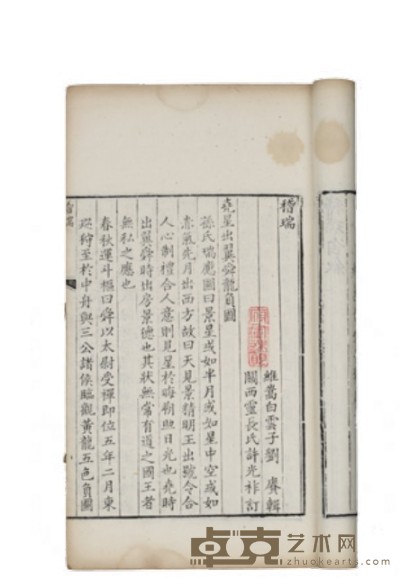 稽瑞
維嵩白雲子劉賡輯
關西靈長氏許光祚訂
堯星出翼舜龍負圖
孫氏瑞應圖曰景星或如半月或如星中空或如
赤氣先月出西方故曰天見景精明王出號令合
人心制禮合人意則見星於晦朔照日光也堯時
出翼舜時出房景德也其狀無常有道之國王者
無私之應也
春秋運斗樞曰舜以太尉受禪即位五年二月東
巡狩至於中舟與三公諸侯臨觀黃龍五色負圖
稽瑞
卓克艺术网
zhuokearts.com